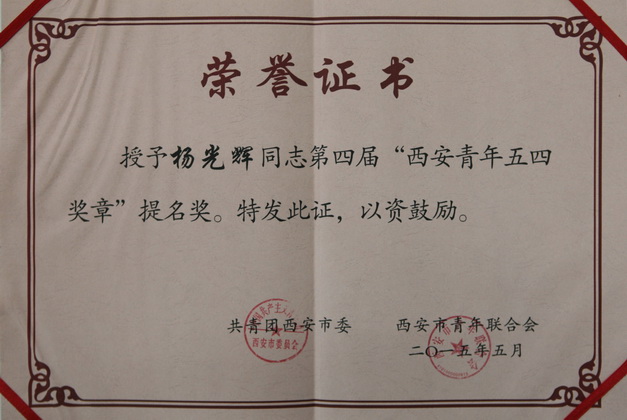 荣誉证书
授予杨光辉同志第四届“西安青年五四
奖章”提名奖。特发此证，以资鼓励。
共青团西安市委 西安市青年联合会
二〇一五年五月
西安市委员会